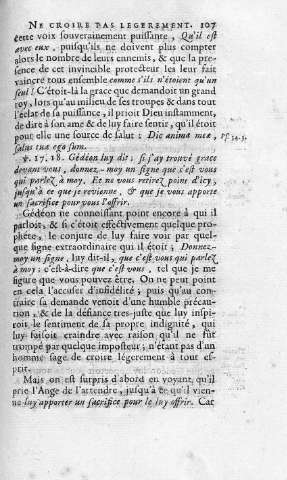 NE CROIRE PAS LEGEREMENT. 107
cette voix souverainement puissante, Qu'il est
avec eux, puisqu'ils ne doivent plus compter
alors le nombre de leurs ennemis, & que la pre-
sence de cet invincible protecteur les leur fait
vaincre tous ensemble comme s'ils n'étoient qu'un
seul ! C'étoit-là la grace que demandoit un grand
roy, lors qu'au milieu de ses troupes & dans tout
l'éclat de sa puissance, il prioit Dieu instamment,
de dire à son ame & de luy faire sentir, qu'il étoit
pout elle une source de salut : Dic animæ meæ,
salus tua ego sum.
Ps. 34. 3.
℣. 17. 18. Gédéon luy dit ; si j'ay trouvé grace
devant vous, donnez-moy un signe que c'est vous
qui parlez à moy. Et ne vous retirez point d'icy,
jusqu'à ce que je revienne, & que je vous apporte
un sacrifice pour vous l'offrir.
Gédéon ne connoissant point encore à qui il
parloit, & si c'étoit effectivement quelque pro-
phéte, le conjure de luy faire voir par quel-
que signe extraordinaire qui il étoit ; Donnez-
moy un signe, luy dit-il, que c'est vous qui parlez
à moy : c'est-à-dire que c'est vous, tel que je me
figure que vous pouvez être. On ne peut point
en cela l'accuser d'infidélité ; puis qu'au con-
traire sa demande venoit d'une humble précau-
tion, & de la défiance tres-juste que luy inspi-
roit le sentiment de sa propre indignité, qui
luy faisoit craindre avec raison qu'il ne fût
trompé par quelque imposteur ; n'étant pas d'un
homme sage de croire légerement à tout es-
prit.
Mais on est surpris d'abord en voyant, qu'il
prie l'Ange de l'attendre, jusqu'à ce qu'il vien-
ne luy apporter un sacrifice pour le luy offrir. Car